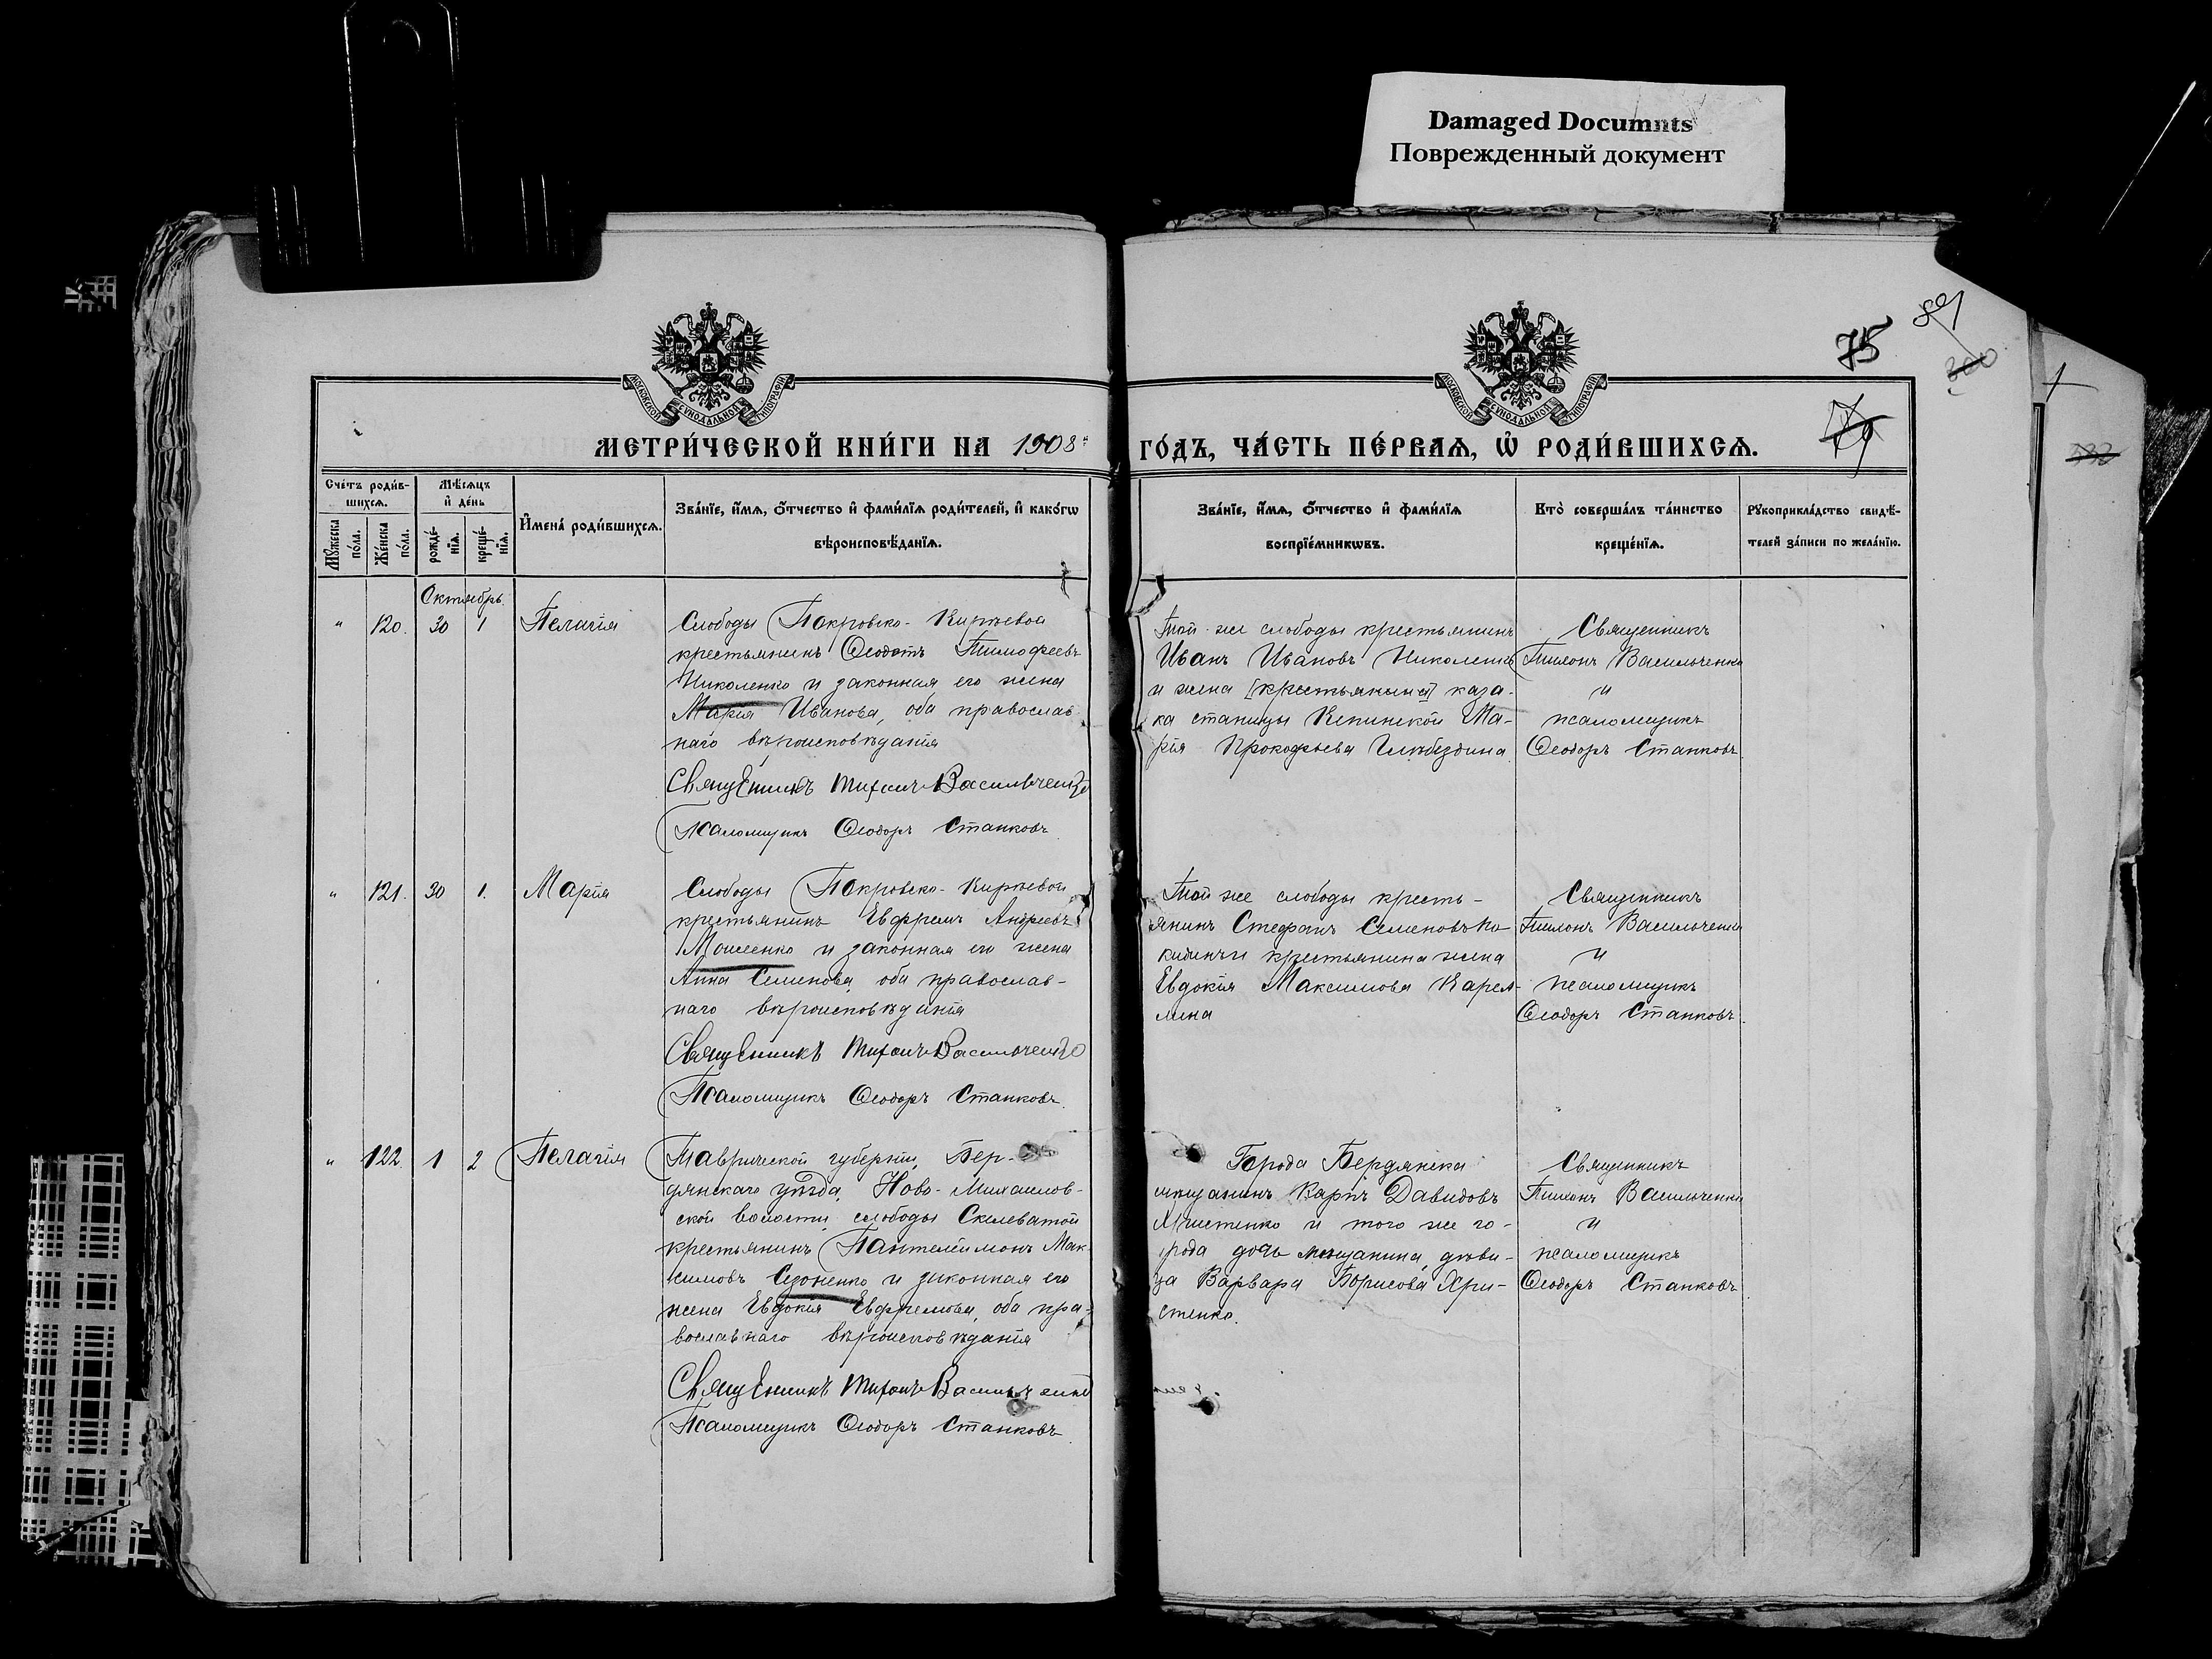 Damaged Documnts
Поврежденный документ
89
75
300
79
МОСКОВСКОЙ СУНОДАЛЬНОЙ ТИПОГРАФІИ
МОСКОВСКОЙ СУНОДАЛЬНОЙ ТИПОГРАФІИ
МЕТРИ́ЧЕСКОЙ КНИ́ГИ НА 1908
ГО́ДЪ, ЧА́СТЬ ПЕ́РВАѦ, Ѡ҆ РОДИ́ВШИХСѦ.
Сче́тъ роди́в-
шихсѧ.
Мꙋ́жеска по́ла.
Же́нска по́ла.
Мѣ́сѧцъ
и҆ де́нь
рожде́-
нїѧ.
креще́-
нїѧ.
И҆мена̀ роди́вшихсѧ.
Зва́нїе, и҆́мѧ, ѻ҆́тчество и҆ фами́лїѧ роди́телей, и҆ како́гѡ
вѣроисповѣ́данїѧ.
Зва́нїе, и҆́мѧ, ѻ҆́тчество и҆ фами́лїѧ
воспрїе́мникѡвъ.
Кто̀ соверша́лъ та́инство
креще́нїѧ.
Рꙋкоприкла́дство свидѣ́-
телей за́писи по жела́нїю.
Октябрь.
" 120. 30 1 Пелагія
Слободы Покровско-Киреевой
крестьянинъ Ѳеодотъ Тимофеевъ
Николенко и законная его жена
Марія Иванова, оба православ
наго вѣроисповѣданія
Священникъ Тихонъ Васильченко
Псаломщикъ Ѳеодоръ Станковъ
Той-же слободы крестьянинъ
Иванъ Ивановъ Николенко
и жена [крестьянина] каза-
ка станицы Кепинской Ма-
рія Прокофьева
Священникъ
Тихонъ Васильченко
и
псаломщикъ
Ѳеодоръ Станковъ
" 121. 30 1. Марія
Слободы Покровско-Киреевой
крестьянинъ Евфремъ Андреевъ
Моисеенко и законная его жена
Анна Семенова, оба православ-
наго вѣроисповѣданія
Священникъ Тихонъ Васильченко
Псаломщикъ Ѳеодоръ Станковъ
Той же слободы кресть-
янинъ Стефанъ Семеновъ
крестьянина жена
Евдокія Максимова Карел-
лина
Священникъ
Тихонъ Васильченко
и
псаломщикъ
Ѳеодоръ Станковъ.
" 122. 1 2 Пелагія
Таврической губерніи, Бер-
дянскаго уѣзда, Ново-Михаилов-
ской волости, слободы Скелеватой
крестьянинъ Пантелеимонъ Мак-
симовъ Сезоненко и законная его
жена Евдокія Евфремова, оба пра-
вославнаго вѣроисповѣданія
Священникъ Тихонъ Васильченко
Псаломщикъ Ѳеодоръ Станковъ
Города Бердянска
мѣщанинъ Карпъ Давидовъ
и того же го-
рода дочь мѣщанина, дѣви-
ца Варвара Борисова Хри-
стенко.
Священникъ
Тихонъ Васильченко
и
псаломщикъ
Ѳеодоръ Станковъ